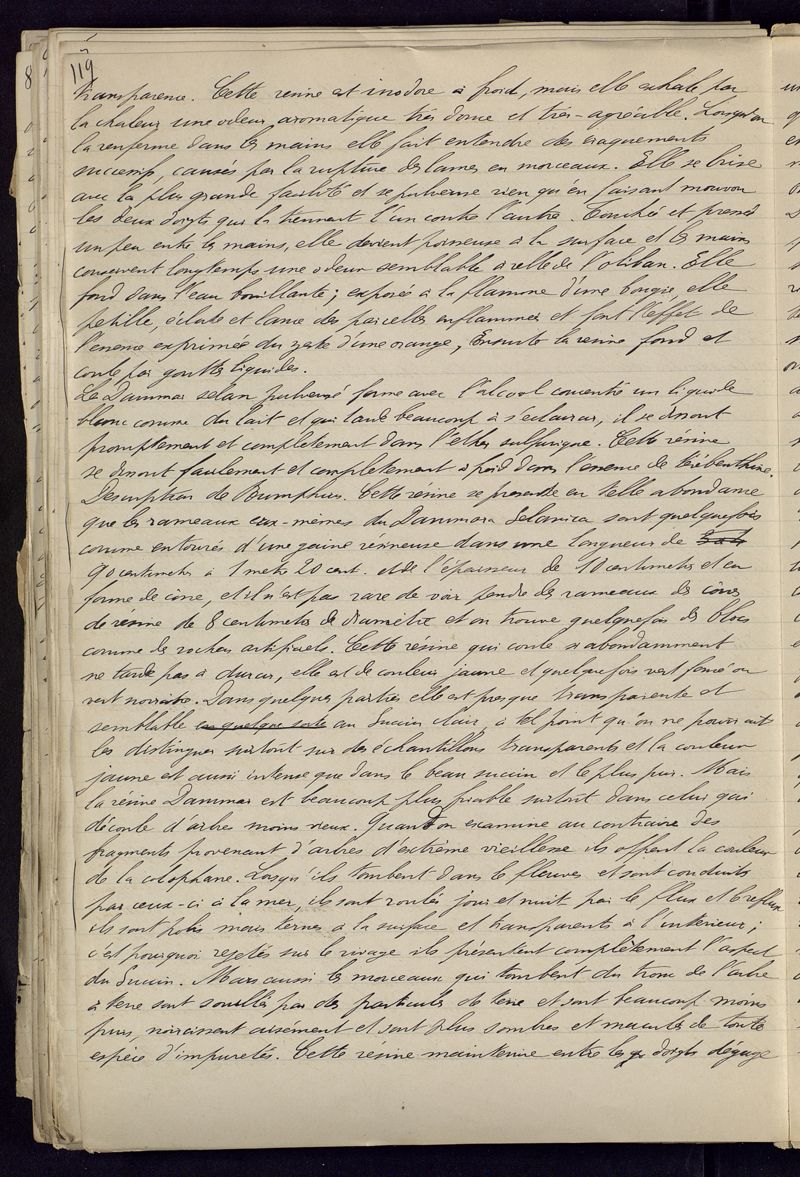 119
transparence. Cette résine est inodore à froid, mais elle exhale par
la chaleur une odeur aromatique très douce et très-agréable. Lorsqu'on
la renferme dans les mains elle fait entendre des craquements
successifs, causés par la rupture des lames en morceaux. Elle se brise
avec la plus grande facilité et se pulvérise rien qu'en faisant mouvoir
les deux doigts qui la tiennent l'un contre l'autre. Touchée et pressé
un peu entre les mains, elle devient poisseuse à la surface et les mains
conservent longtemps une odeur semblable à celle de l'oliban. Elle
fond dans l'eau bouillante; exposée à la flamme d'une bougie, elle
petille, éclate et lance des parcelles enflammées et fait l'effet de
l'essence exprimée du zeste d'une orange, Ensuite la résine fond et
coule par gouttes liquides.
Le Dammar selan pulverisé forme avec l'alcool concentré un liquide
blanc comme du lait et qui tarde beaucoup à s'eclaircir, il se dissout
promptement et complètement dans l'ether sulfurique. Cette résine
se dissout facilement et complètement à froid dans l'essence de térébenthine.
Description de Rumphius. Cette résine se presente en telle abondance
que les rameaux eux-mêmes du Dammara Selanica sont quelquefois
comme entourés d'une gaine résineuse dans une longueur de
90 centimètres à 1 mètre 20 cent. et de l'épaisseur de 10 centimètres et en
forme de cône, et il n'est pas rare de voir pendre des rameaux des cônes
de résine de 8 centimètres de diamètre et on trouve quelquefois des blocs
comme des roches artificiels. Cette résine qui coule si abondamment
ne tarde pas à durcir, elle est de couleur jaune et quelquefois vert foncé ou
vert noirâtre. Dans quelques parties elle est presque transparente et
semblable en quelque sorte au Succin clair, à tel point qu'on ne pourrait
les distinguer surtout sur des échantillons transparents et la couleur
jaune est aussi intense que dans le beau succin et le plus pur. Mais
la résine Dammar est beaucoup plus friable surtout dans celui qui
découle d'arbres moins vieux. Quand on examine au contraire des
fragments provenant d'arbres d'extrême vieillesse ils offrent la couleur
de la colophane. Lorsqu'ils tombent dans le fleuves et sont conduits
par ceux-ci à la mer, ils sont roulés jour et nuit par le flux et le reflux
ils sont polis mais ternes à la surface et transparents à l'interieur;
c'est pourquoi rejetés sur le rivage ils présentent complètement l'aspect
du Succin. Mais aussi les morceaux qui tombent du tronc de l'arbre
à terre sont souillés par des particules de terre et sont beaucoup moins
purs, noircissent aisement et sont plus sombres et maculés de toute
espèce d'impuretés. Cette résine maintenue entre les doigts dégage